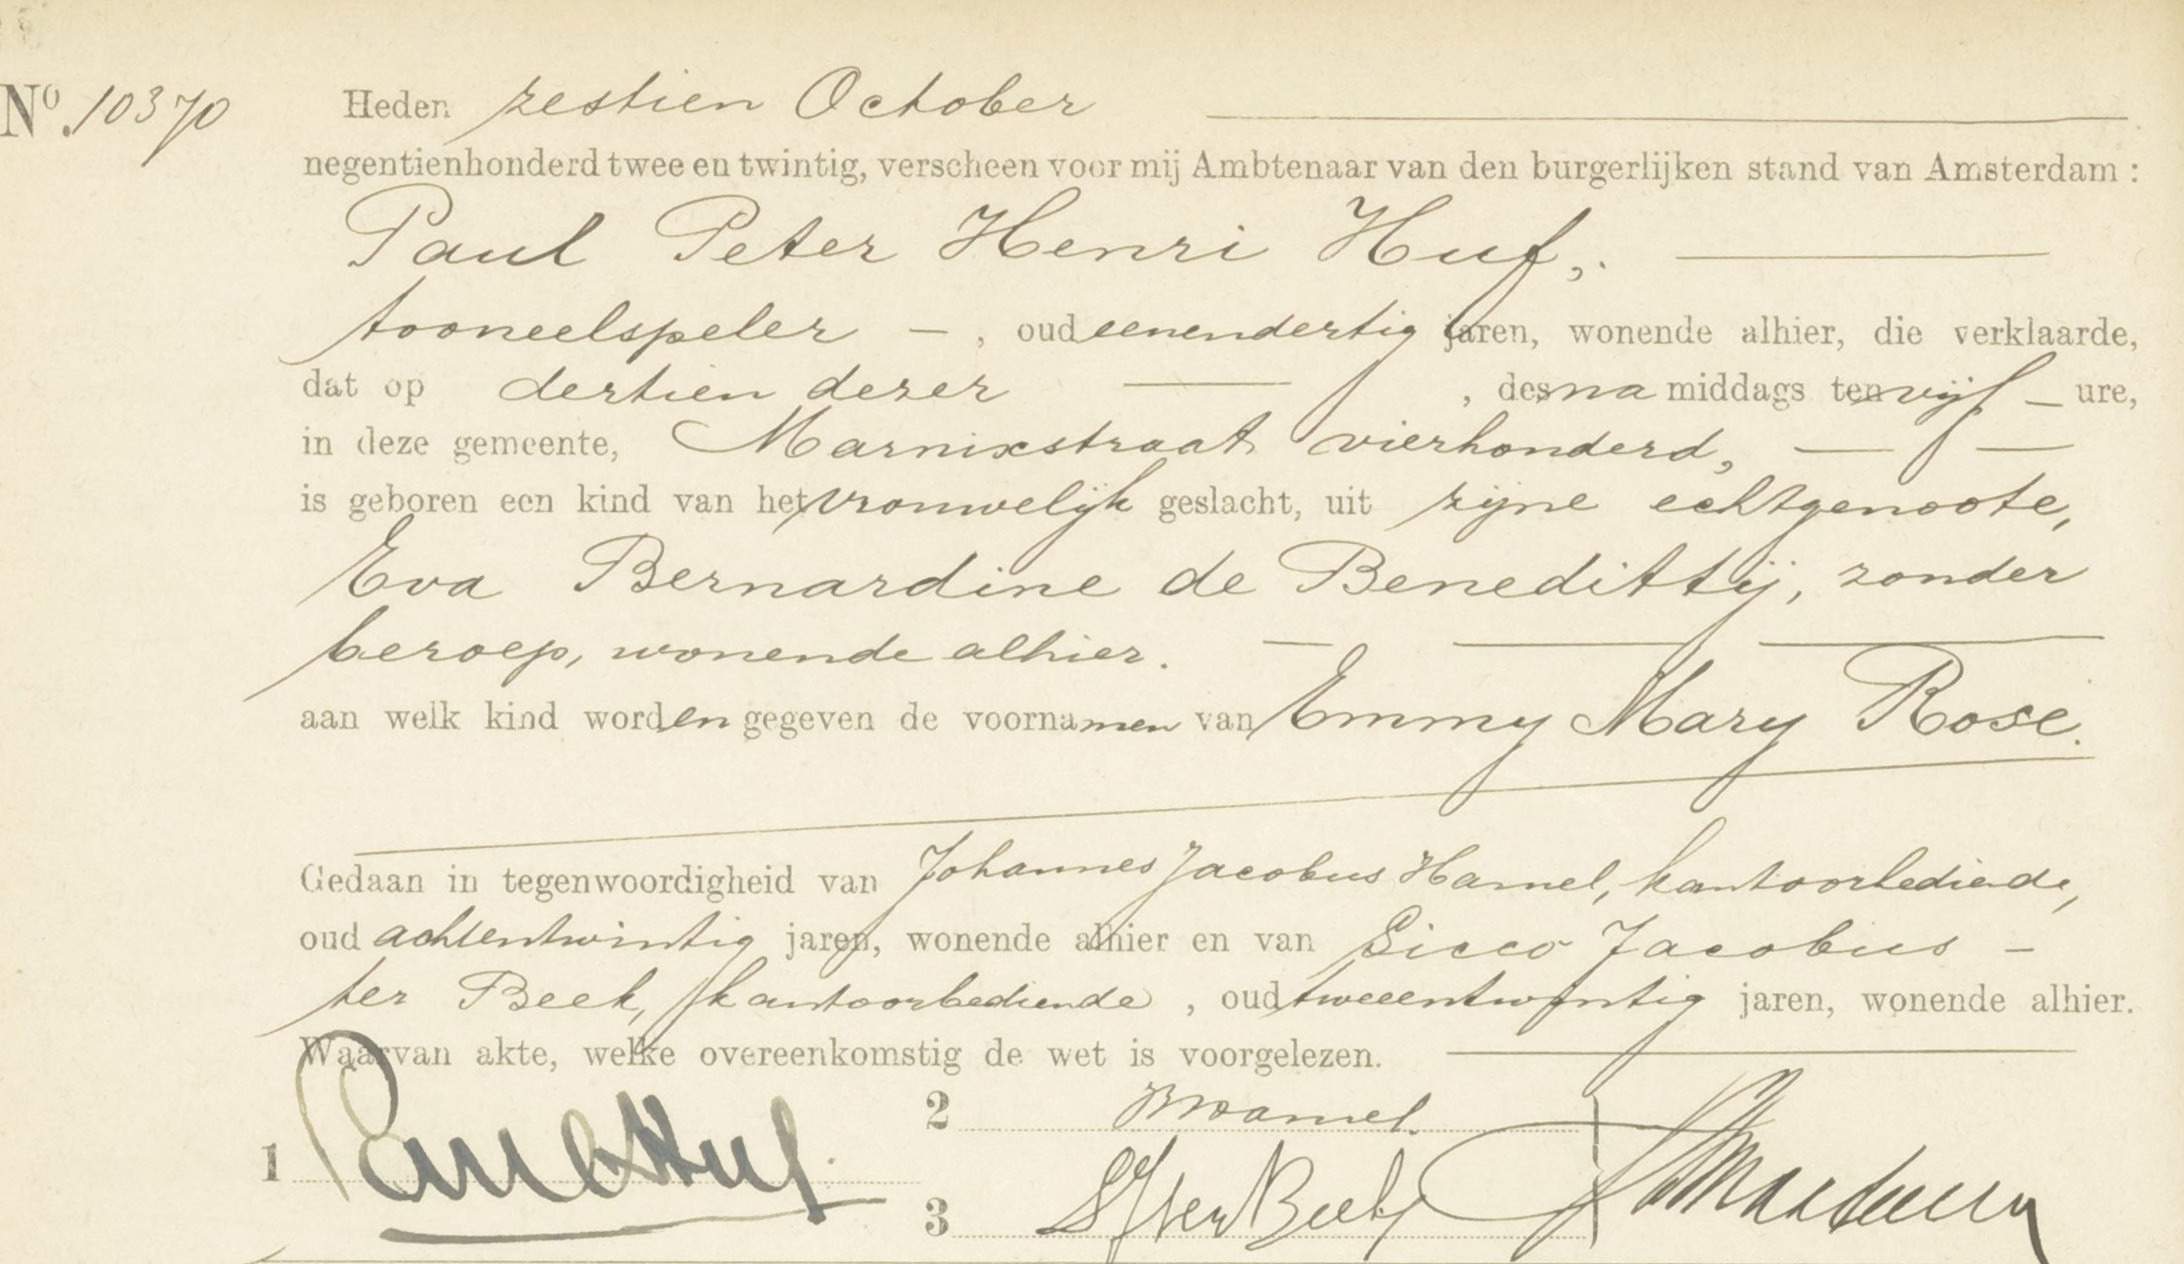 No. 10370 Heden zestien October
negentienhonderd twee en twintig, verscheen voor mij Ambtenaar van den burgerlijken stand van Amsterdam :
Paul Peter Henri Huf,
tooneelspeler — , oud eenendertig jaren, wonende alhier, die verklaarde,
dat op dertien dezer — , des na middags ten vijf — ure,
in deze gemeente, Marnixstraat vierhonderd, — —
is geboren een kind van het vrouwelijk geslacht, uit zijne echtgenoote,
Eva Bernardine de Benedittij, zonder
beroep, wonende alhier. — — —
aan welk kind worden gegeven de voornamen van Emmy Mary Rose.
Gedaan in tegenwoordigheid van Johannes Jacobus Hamel, kantoorbediende,
oud achtentwintig jaren, wonende alhier en van Sicco Jacobus –
ter Beek, kantoorbediende , oud tweeentwintig jaren, wonende alhier.
Waarvan akte, welke overeenkomstig de wet is voorgelezen.
1 Paul Huf
2 Hamel.
3 SJ ter Beek